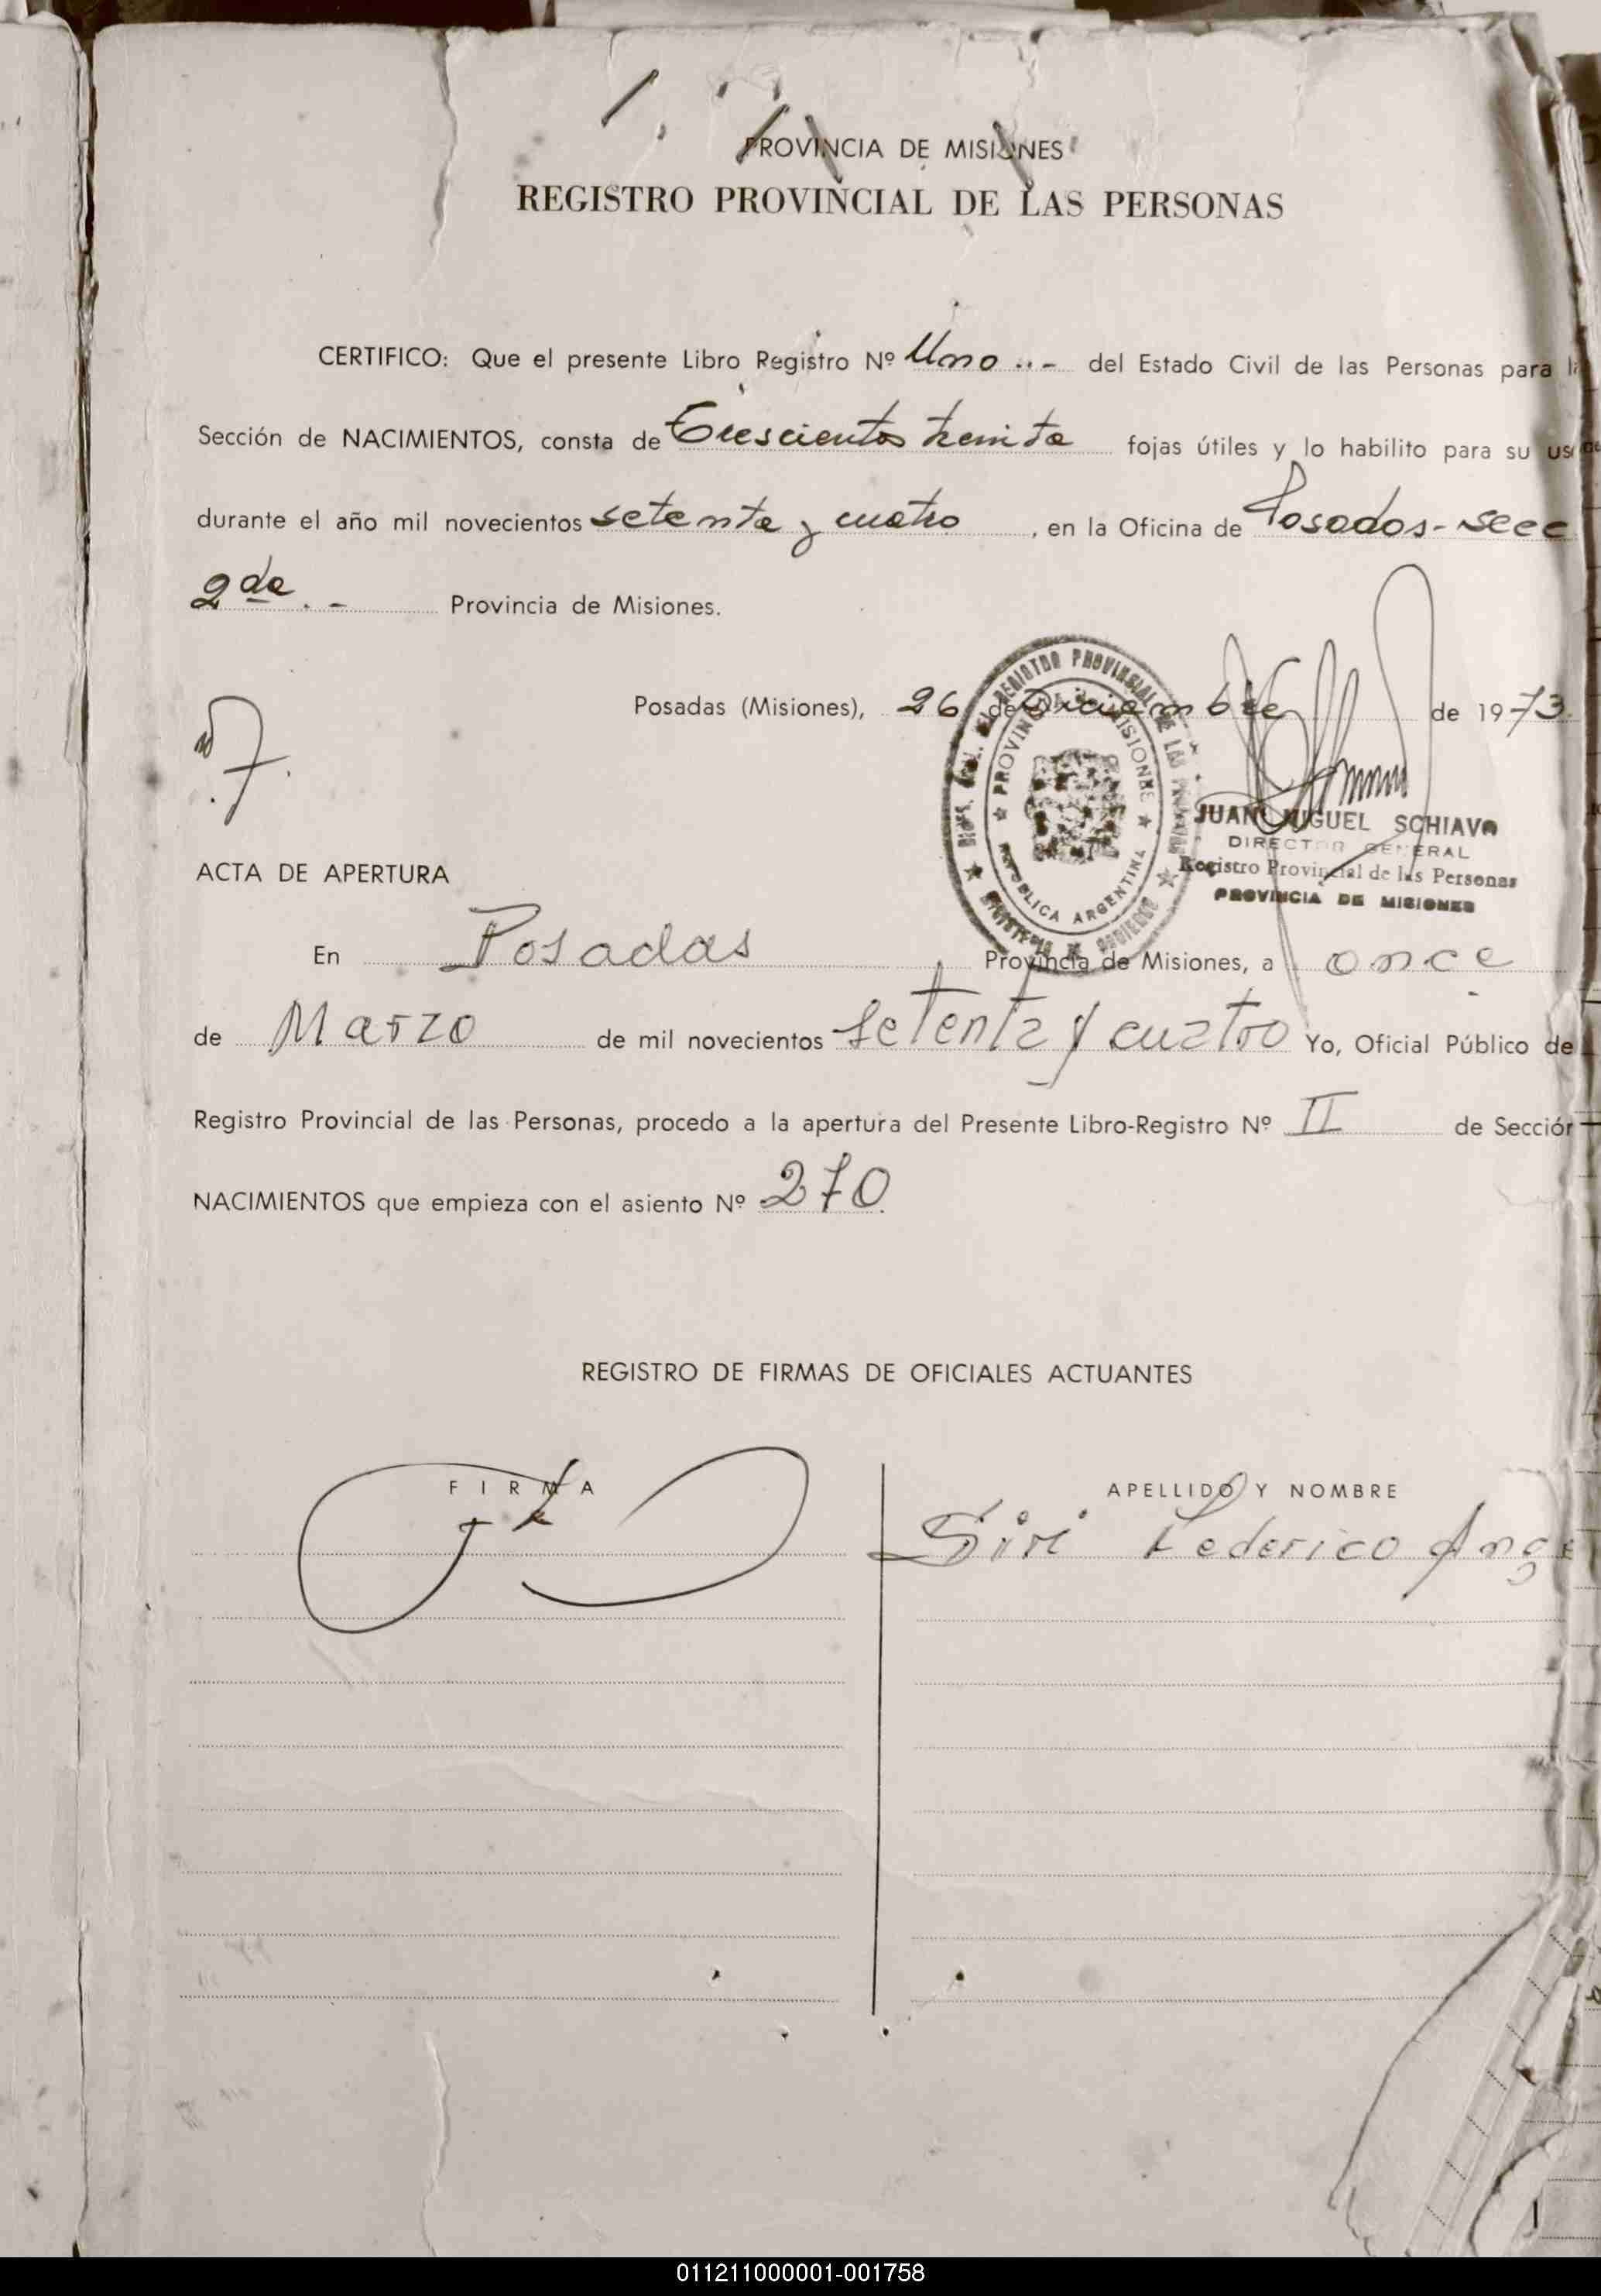 PROVINCIA DE MISIONES
REGISTRO PROVINCIAL DE LAS PERSONAS
CERTIFICO: Que el presente Libro Registro Nº Uno ..- del Estado Civil de las Personas para l
Sección de NACIMIENTOS, consta de Trescientos treinta fojas útiles y lo habilito para su us
durante el año mil novecientos setenta y cuatro , en la Oficina de Posadas - secc
2da . - Provincia de Misiones.
Posadas (Misiones), 26 de Diciembre de 1973.
REGISTRO PROVINCIAL DE LAS
PROVINCIA MISIONES
REPUBLICA ARGENTINA
JUAN MIGUEL SCHIAVO
DIRECTOR GENERAL
Registro Provincial de las Personas
PROVINCIA DE MISIONES
ACTA DE APERTURA
En Posadas Provincia de Misiones, a once
de Marzo de mil novecientos setenta y cuatro Yo, Oficial Público de
Registro Provincial de las Personas, procedo a la apertura del Presente Libro-Registro Nº II de Sección
NACIMIENTOS que empieza con el asiento Nº 270
REGISTRO DE FIRMAS DE OFICIALES ACTUANTES
FIRMA APELLIDO Y NOMBRE
Siri Federico Ange
011211000001-001758